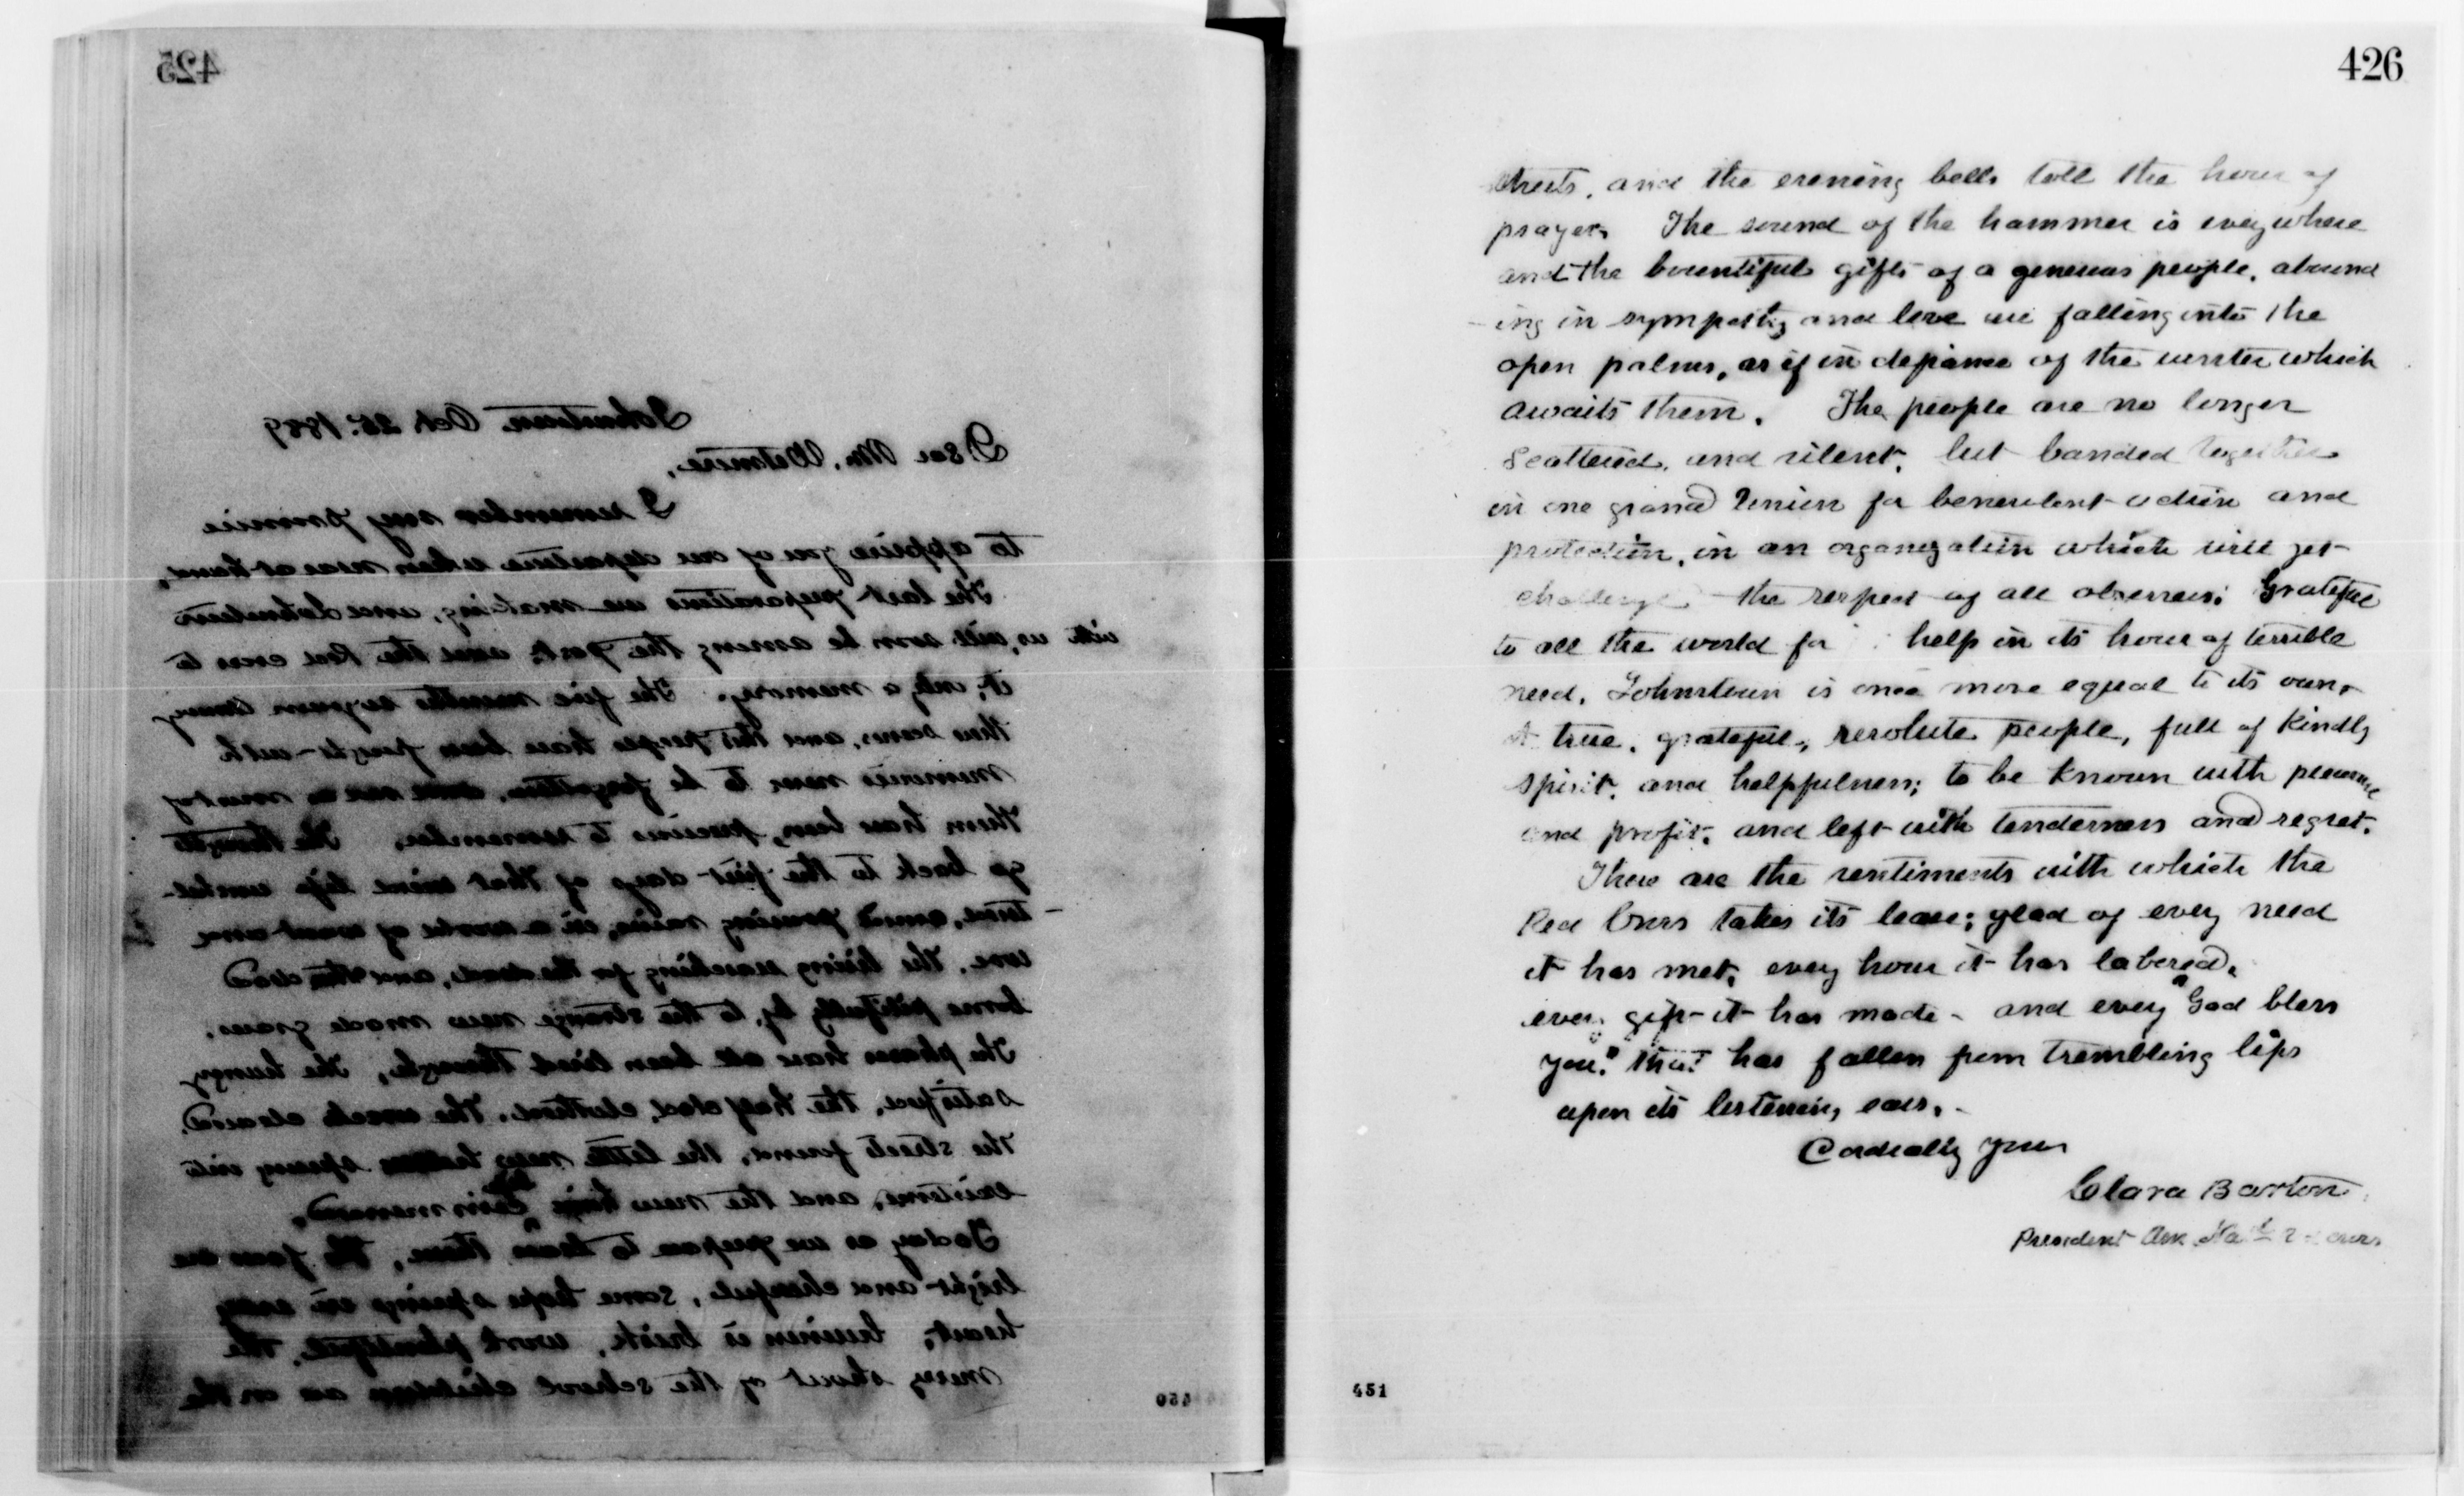 425
Johnstown, Oct. 25. 1889
Dear Mr. Wetmore,
I remember my promise
to apprise you of our departure when near at hand,
The last preparations are making, and Johnstown
with us, will soon be among the past; and the Red cross to
it, only a memory. The five months sojourn among
these scenes, and this people have been fraught with
memories never to be forgotten, as most of
them have been, precious to remember. The thoughts
go back to the first days of that weird life
amid pouring rains, in a world of want and
woe, the living searching for the dead, and the dead
borne pitifully by, to the strange new made graves.
The phases have all been lived through, the hungry
satisfied, the half clad, clothed. the wreck cleared,
the streets found, the little new sprung into
existence, and the new
Today as we prepare to leave them, the faces are
bright and cheerful, some hope springs in every
heart; business is brisk, work plentiful, the
merry shout of the school children are on the
450
426
streets, and the evening bells toll the hour of
prayer. The sound of the hammer is everywhere
and the bountiful gifts of a generous people, abound
-ing in sympathy and love are falling into the
open palms, as if in defiance of the winter which
awaits them. The people are no longer
scattered, and silent, but banded together
in one grand Union for benevolent action and
protection, in an organization which will yet
challenge the respect of all observers: Grateful
to all the world for help in its hour of terrible
need, Johnstown is once more equal to its own,
A true, grateful, resolute people, full of kindly
spirit, and helpfulness; to be known with pleasure
and profit, and left with tenderness and regret.
These are the sentiments with which the
Red Cross takes its leave; glad of every need
it has met, every hour it has labored,
every gift it has made - and every "God bless
you," that has fallen from trembling lips
upon its listening ears. -
Cordially yours
Clara Barton
President Am. Natl Cross
451